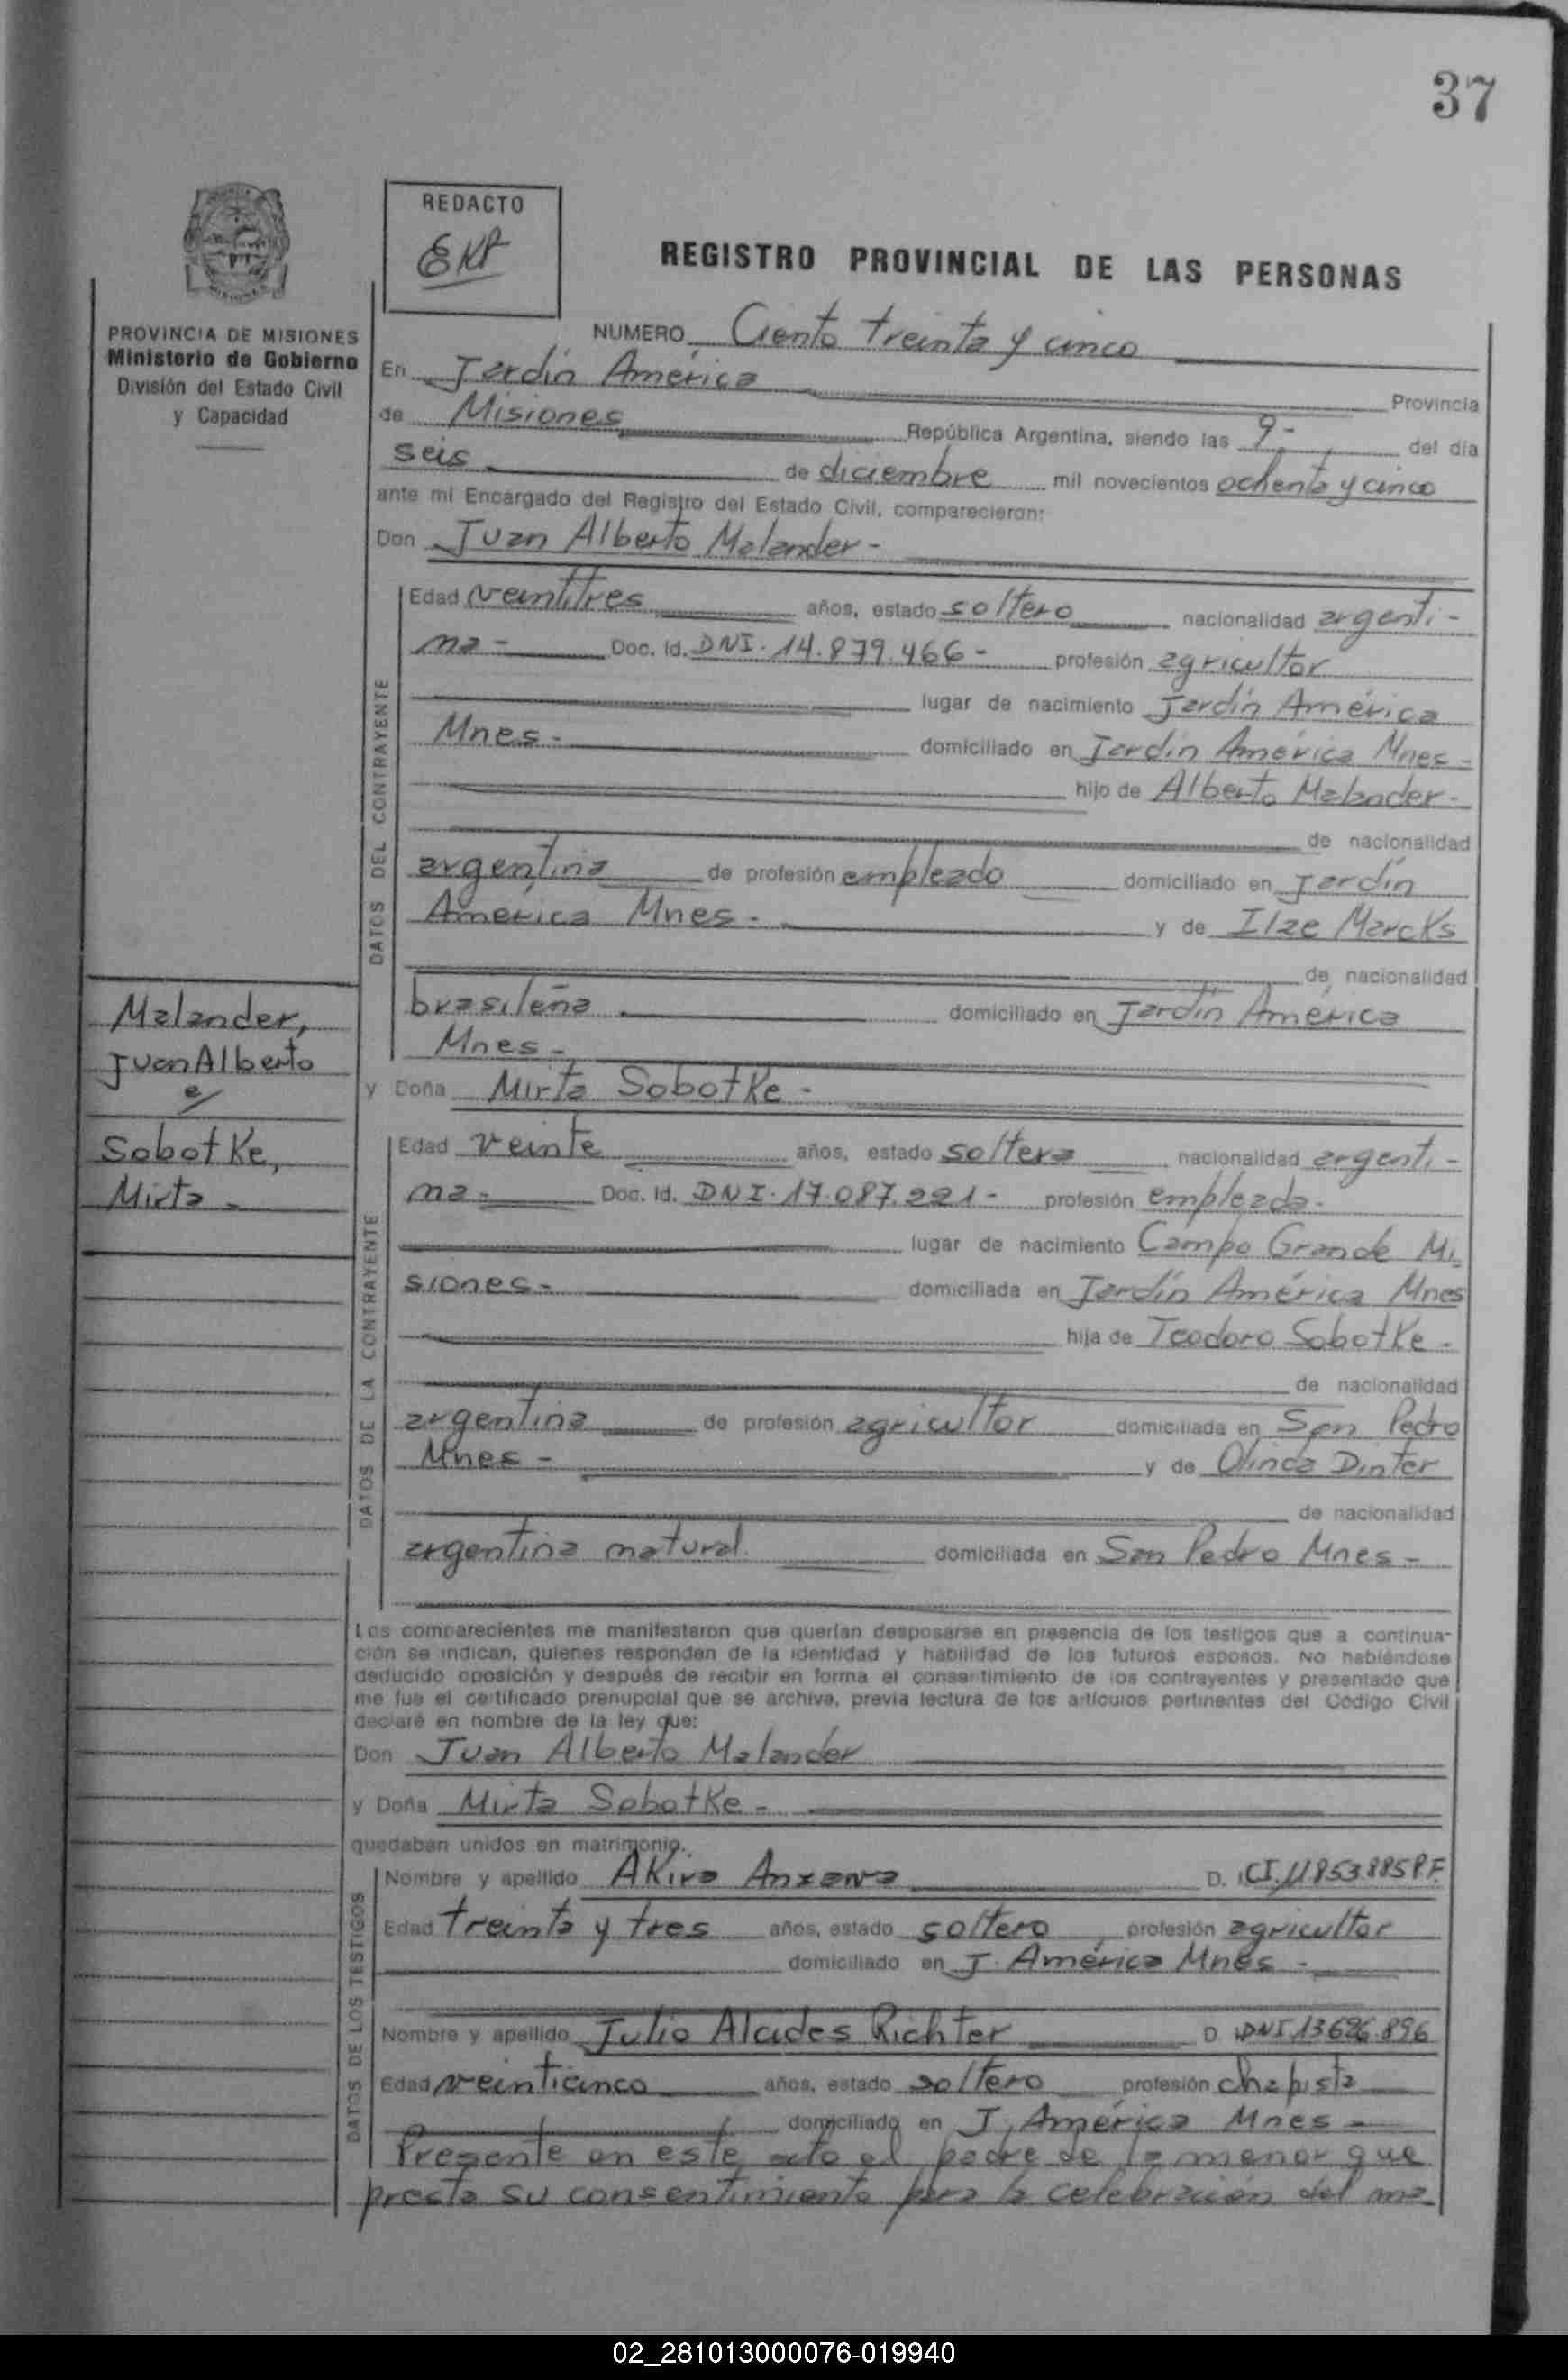 37
REDACTO
REGISTRO PROVINCIAL DE LAS PERSONAS
PROVINCIA DE MISIONES
Ministerio de Gobierno
División del Estado Civil
y Capacidad
NUMERO Ciento treinta y cinco
En Jardín América Provincia
de Misiones República Argentina, siendo las 9- del día
seis de diciembre mil novecientos ochenta y cinco
ante mi Encargado del Registro del Estado Civil, comparecieron:
Don Juan Alberto Malander -
DATOS DEL CONTRAYENTE
Edad veintitres años, estado soltero nacionalidad argenti-
na - Doc. Id. DNI. 14.879.466 - profesión agricultor
lugar de nacimiento Jardín América
Mnes - domiciliado en Jardín América Mnes -
hijo de Alberto Malander -
de nacionalidad
argentina de profesión empleado domiciliado en Jardín
América Mnes - y de Ilze Marcks
de nacionalidad
brasileña domiciliado en Jardín América
Mnes -
y Doña Mirta Sobotke -
Malander,
Juan Alberto
c/
Sobotke,
Mirta -
DATOS DE LA CONTRAYENTE
Edad veinte años, estado soltera nacionalidad argenti-
na - Doc. Id. DNI. 17.087.221 - profesión empleada -
lugar de nacimiento Campo Grande Mi
siones - domiciliada en Jardín América Mnes
hija de Teodoro Sobotke -
de nacionalidad
argentina de profesión agricultor domiciliada en San Pedro
Mnes - y de Olinda Dinter
de nacionalidad
argentina natural domiciliada en San Pedro Mnes -
Los comparecientes me manifestaron que querían desposarse en presencia de los testigos que a continua-
ción se indican, quienes responden de la identidad y habilidad de los futuros esposos. No habiéndose
deducido oposición y después de recibir en forma el consentimiento de los contrayentes y presentado que
me fue el certificado prenupcial que se archiva, previa lectura de los artículos pertinentes del Código Civil
declaré en nombre de la ley que:
Don Juan Alberto Malander
y Doña Mirta Sobotke -
quedaban unidos en matrimonio.
DATOS DE LOS TESTIGOS
Nombre y apellido Akira D. I CI. 11853885 P.F.
Edad treinta y tres años, estado soltero profesión agricultor
domiciliado en J. América Mnes -
Nombre y apellido Julio Alcides Richter D. I DNI 13.626.896
Edad veinticinco años, estado soltero profesión chapista
domiciliado en J. América Mnes -
Presente en este acto el padre de la menor que
presta su consentimiento para la celebración del ma
02_281013000076-019940